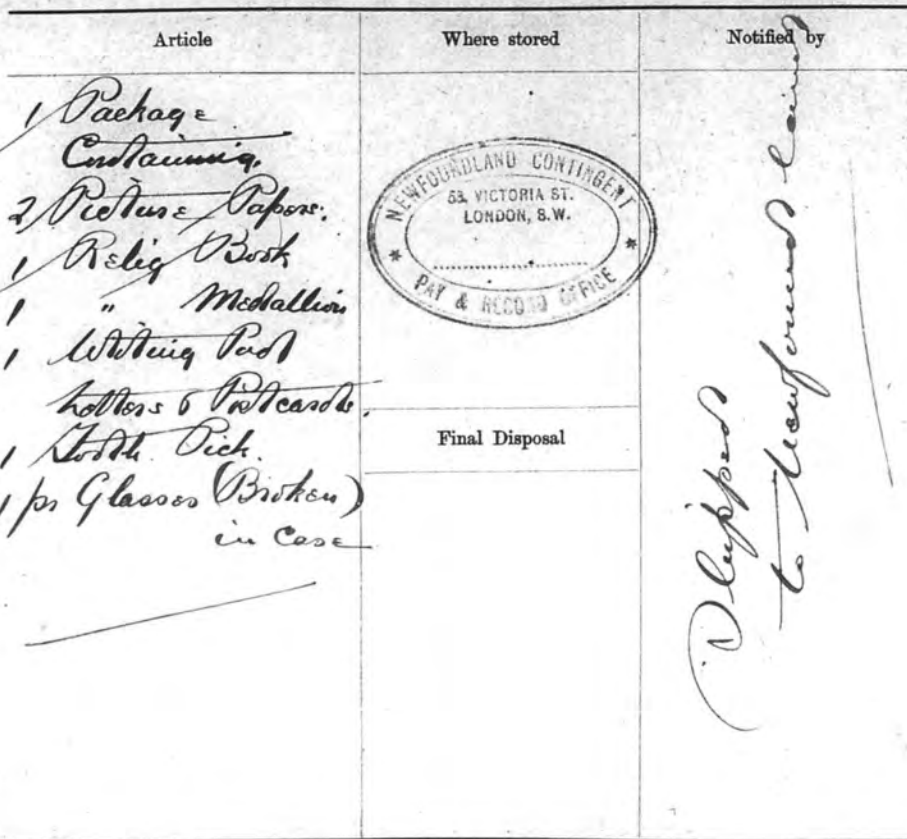 Article
Where stored
Notified by
1 Package
Containing.
2 Picture Papers.
1 Relig Book
1 " Medallion
1 Writing Pad
Letters & Postcards.
1 Tooth Pick.
1 pr Glasses (Broken)
in Case
NEWFOUNDLAND CONTINGENT
58, VICTORIA ST.
LONDON, S.W.
PAY & RECORD OFFICE
Final Disposal
Shipped
to Newfoundland